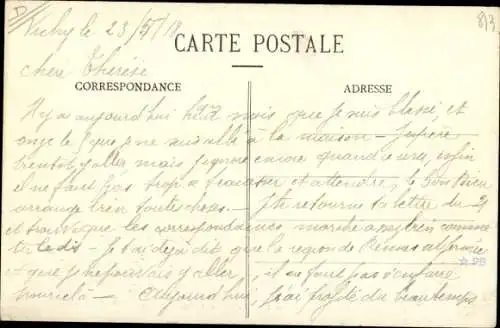 Vichy le 23/5/18
813
CARTE POSTALE
Chère Thérèse
CORRESPONDANCE
ADRESSE
Il y a aujourd'hui huit mois que je suis blessé, et
onze que je ne suis allé à la maison - J'espère
bientôt y aller mais j'ignore encore quand ce sera, enfin
il ne faut pas trop se tracasser et attendre, le Bon Dieu
arrange bien toutes choses. Je te retourne ta lettre du 21
et trouve que les correspondances marche assez bien comme
tu le dis - Je t'ai déjà dit que la région de Rennes
et que je ne pouvais y aller, il ne faut pas s'en faire
pour cela - Aujourd'hui j'ai profité du beau temps